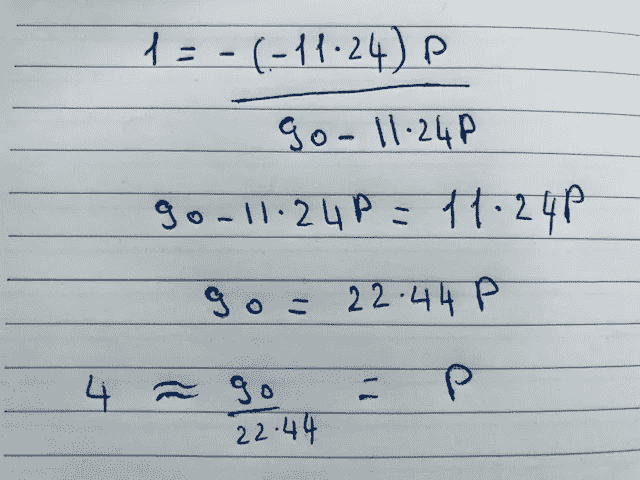 1 = -(-11.24) P
90 - 11.24P
90 - 11.24P = 11.24P
90 = 22.44 P
4 ≈ 90/22.44 = P